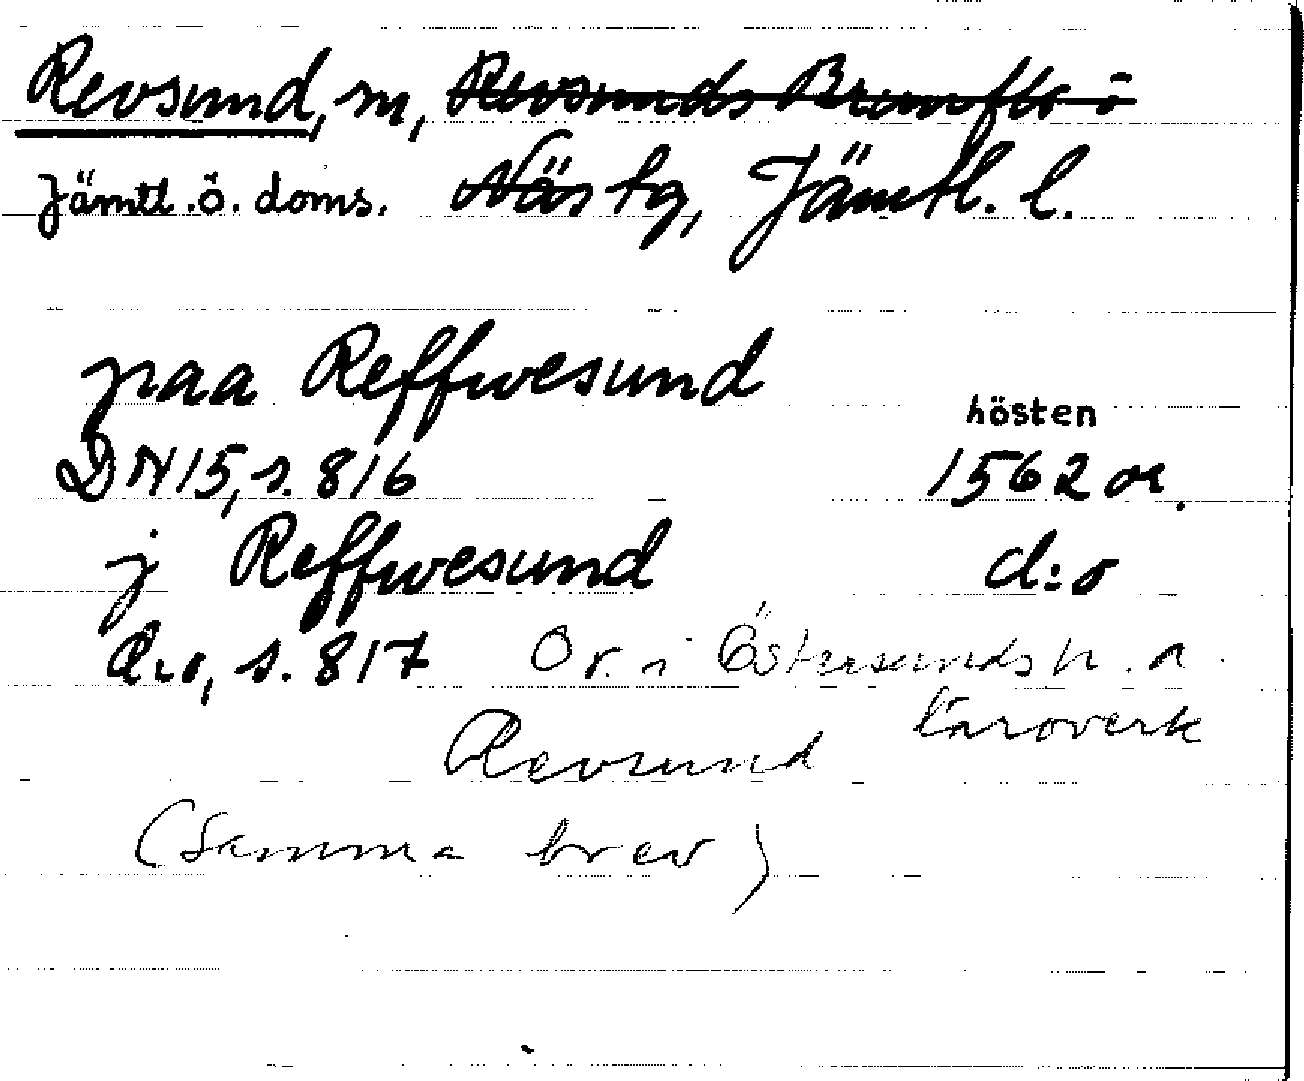 Revsund, sn, Revsunds Brunflo o
Jämtl. ö. doms. Näs tg, Jämtl. l.
paa Reffwesund
hösten
DN 15, s. 816 1562 or.
j Reffwesund d:o
d:o, s. 817 Or. i Östersunds h. a.
läroverk
Revsund
(Samma brev)